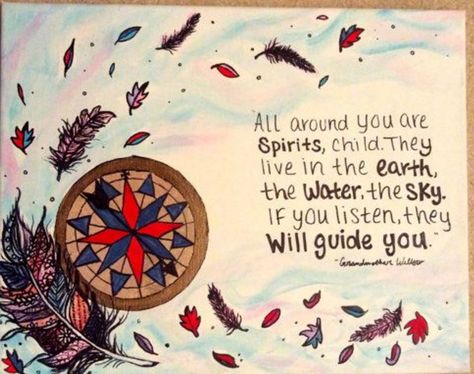 "All around you are
Spirits, child. They
live in the earth,
the water, the sky.
If you listen, they
will guide you."
-Grandmother Willow